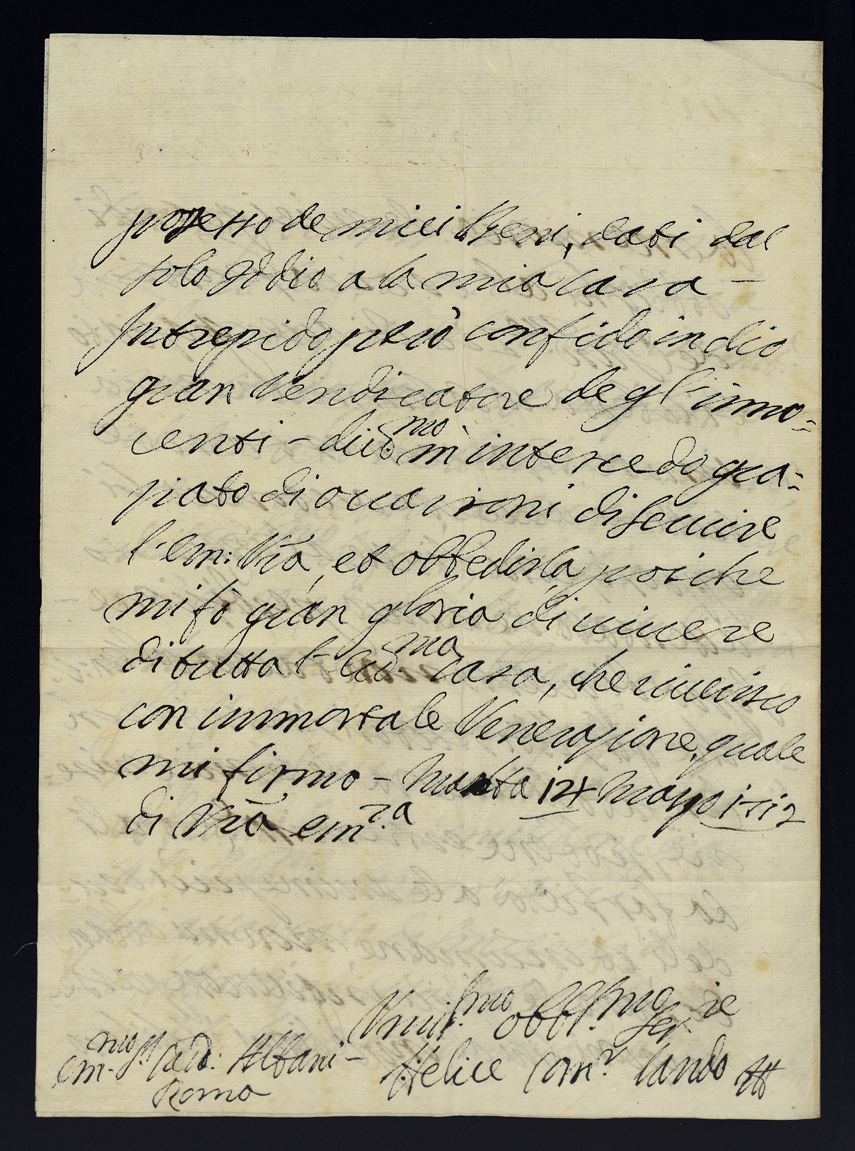 possesso de miei Beni, dati dal
solo Iddio a la mia Casa –
Intrepido però confido in dio
gran Vendicatore de gl'inno=
centi – div.mo m'intercedo gra=
piato di occasioni di seruire
l'em: Vrã, et obbedirla, poiche
mi fò gran gloria di uiuere
di tutta l' Ecc.ma Casa, che riuerisco
con immortale Venerazione, quale
mi firmo – Malta 14 Mayo 1712
di Vrã em.za
Vmil.mo obb.mo Ser.re
Em.mo Sr Card: Albani –
Roma
Felice Com.r Lando